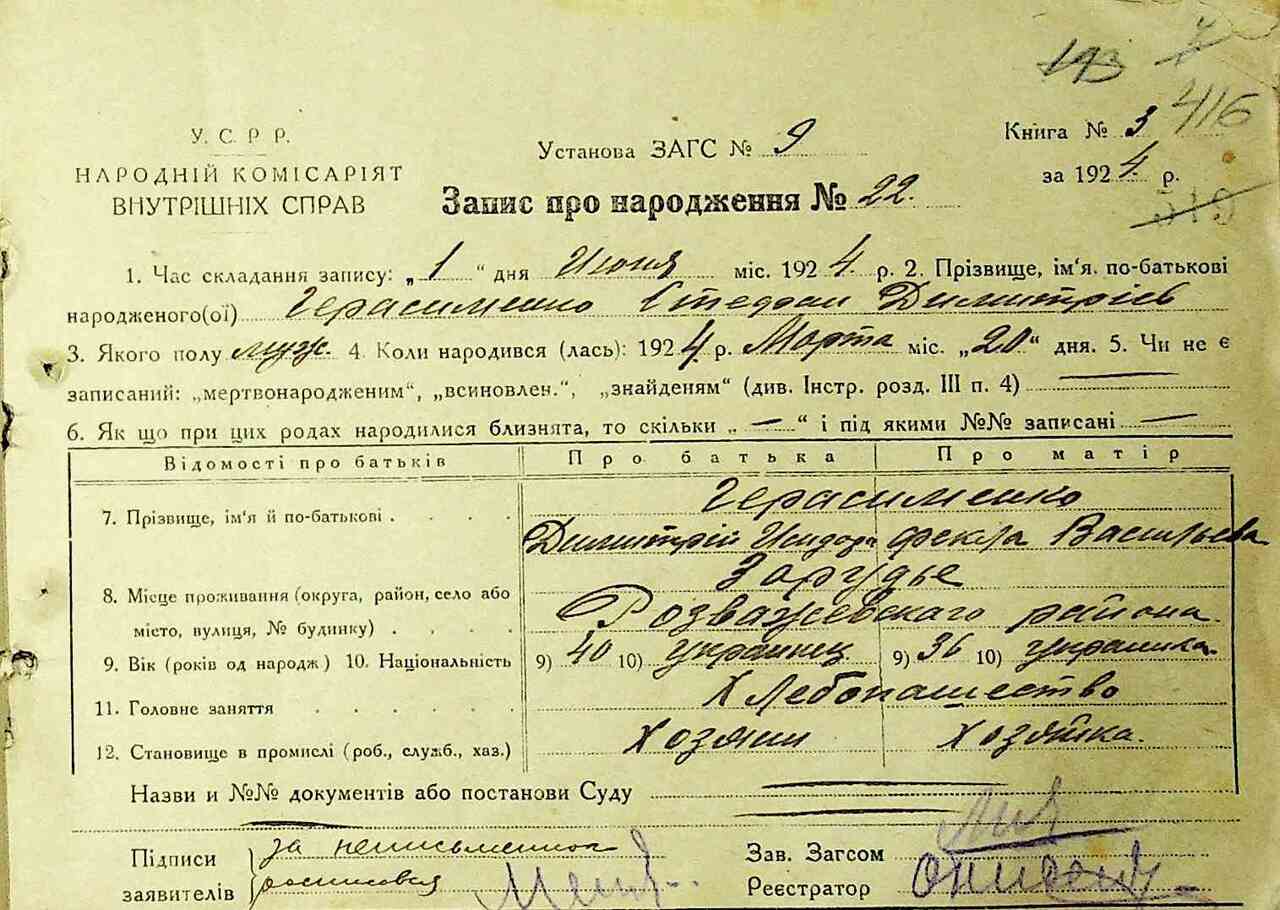 193
416
У. С. Р Р.
НАРОДНІЙ КОМІСАРІЯТ
ВНУТРІШНІХ СПРАВ
Установа ЗАГС № 9
Книга № 3
за 1924 р.
519
Запис про народження № 22.
1. Час складання запису: „1“ дня Июня міс. 1924 р. 2. Прізвище, ім'я. по-батькові
народженого(ої) Герасименко Стефан Димитріев
3. Якого полу муж. 4. Коли народився (лась): 1924 р. Марта міс. „20“ дня. 5. Чи не є
записаний: „мертвонародженим“, „всиновлен.“, „знайденям“ (див. Інстр. розд. III п. 4) —
6. Як що при цих родах народилися близнята, то скільки „—“ і під якими №№ записані —
Відомості про батьків Про батька Про матір
7. Прізвище, ім'я й по-батькові . . . . Герасименко
Димитрій Исидор Фекла Васильева
8. Місце проживання (округа, район, село або Зорудье
місто, вулиця, № будинку) . . . . Розважевскаго района
9. Вік (років од народж) 10. Національність 9) 40 10) украинец 9) 36 10) украинка
11. Головне заняття . . . . . Хлебопашество
12. Становище в промислі (роб., служб., хаз.) Хозяин Хозяйка.
Назви и №№ документів або постанови Суду
Підписи за неписьменного
заявителів
Зав. Загсом
Реєстратор